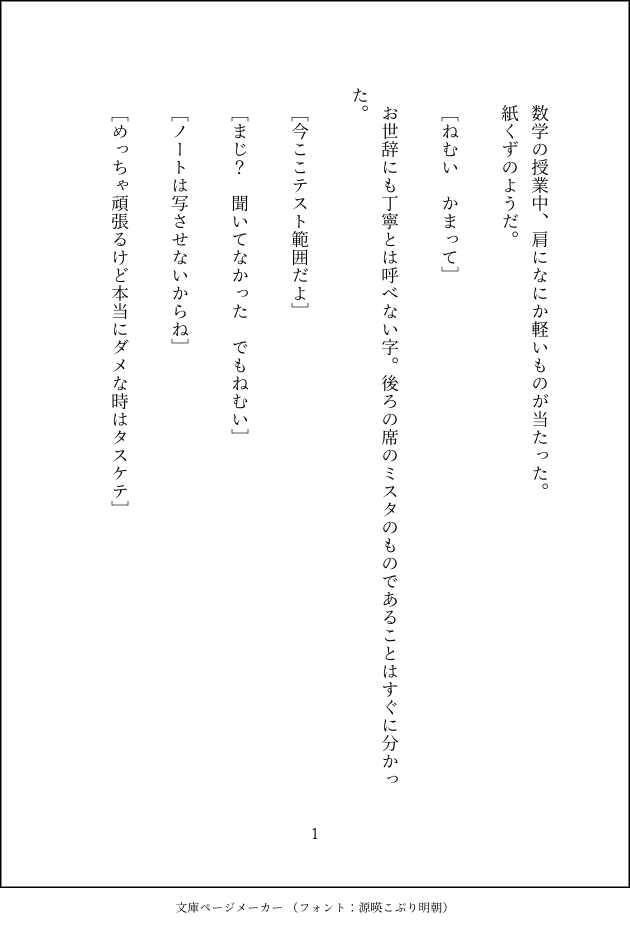 数学の授業中、肩になにか軽いものが当たった。
紙くずのようだ。
［ねむい　かまって］
お世辞にも丁寧とは呼べない字。後ろの席のミスタのものであることはすぐに分かっ
た。
［今ここテスト範囲だよ］
［まじ？　聞いてなかった　でもねむい］
［ノートは写させないからね］
［めっちゃ頑張るけど本当にダメな時はタスケテ］
1
文庫ページメーカー （フォント：源暎こぶり明朝）